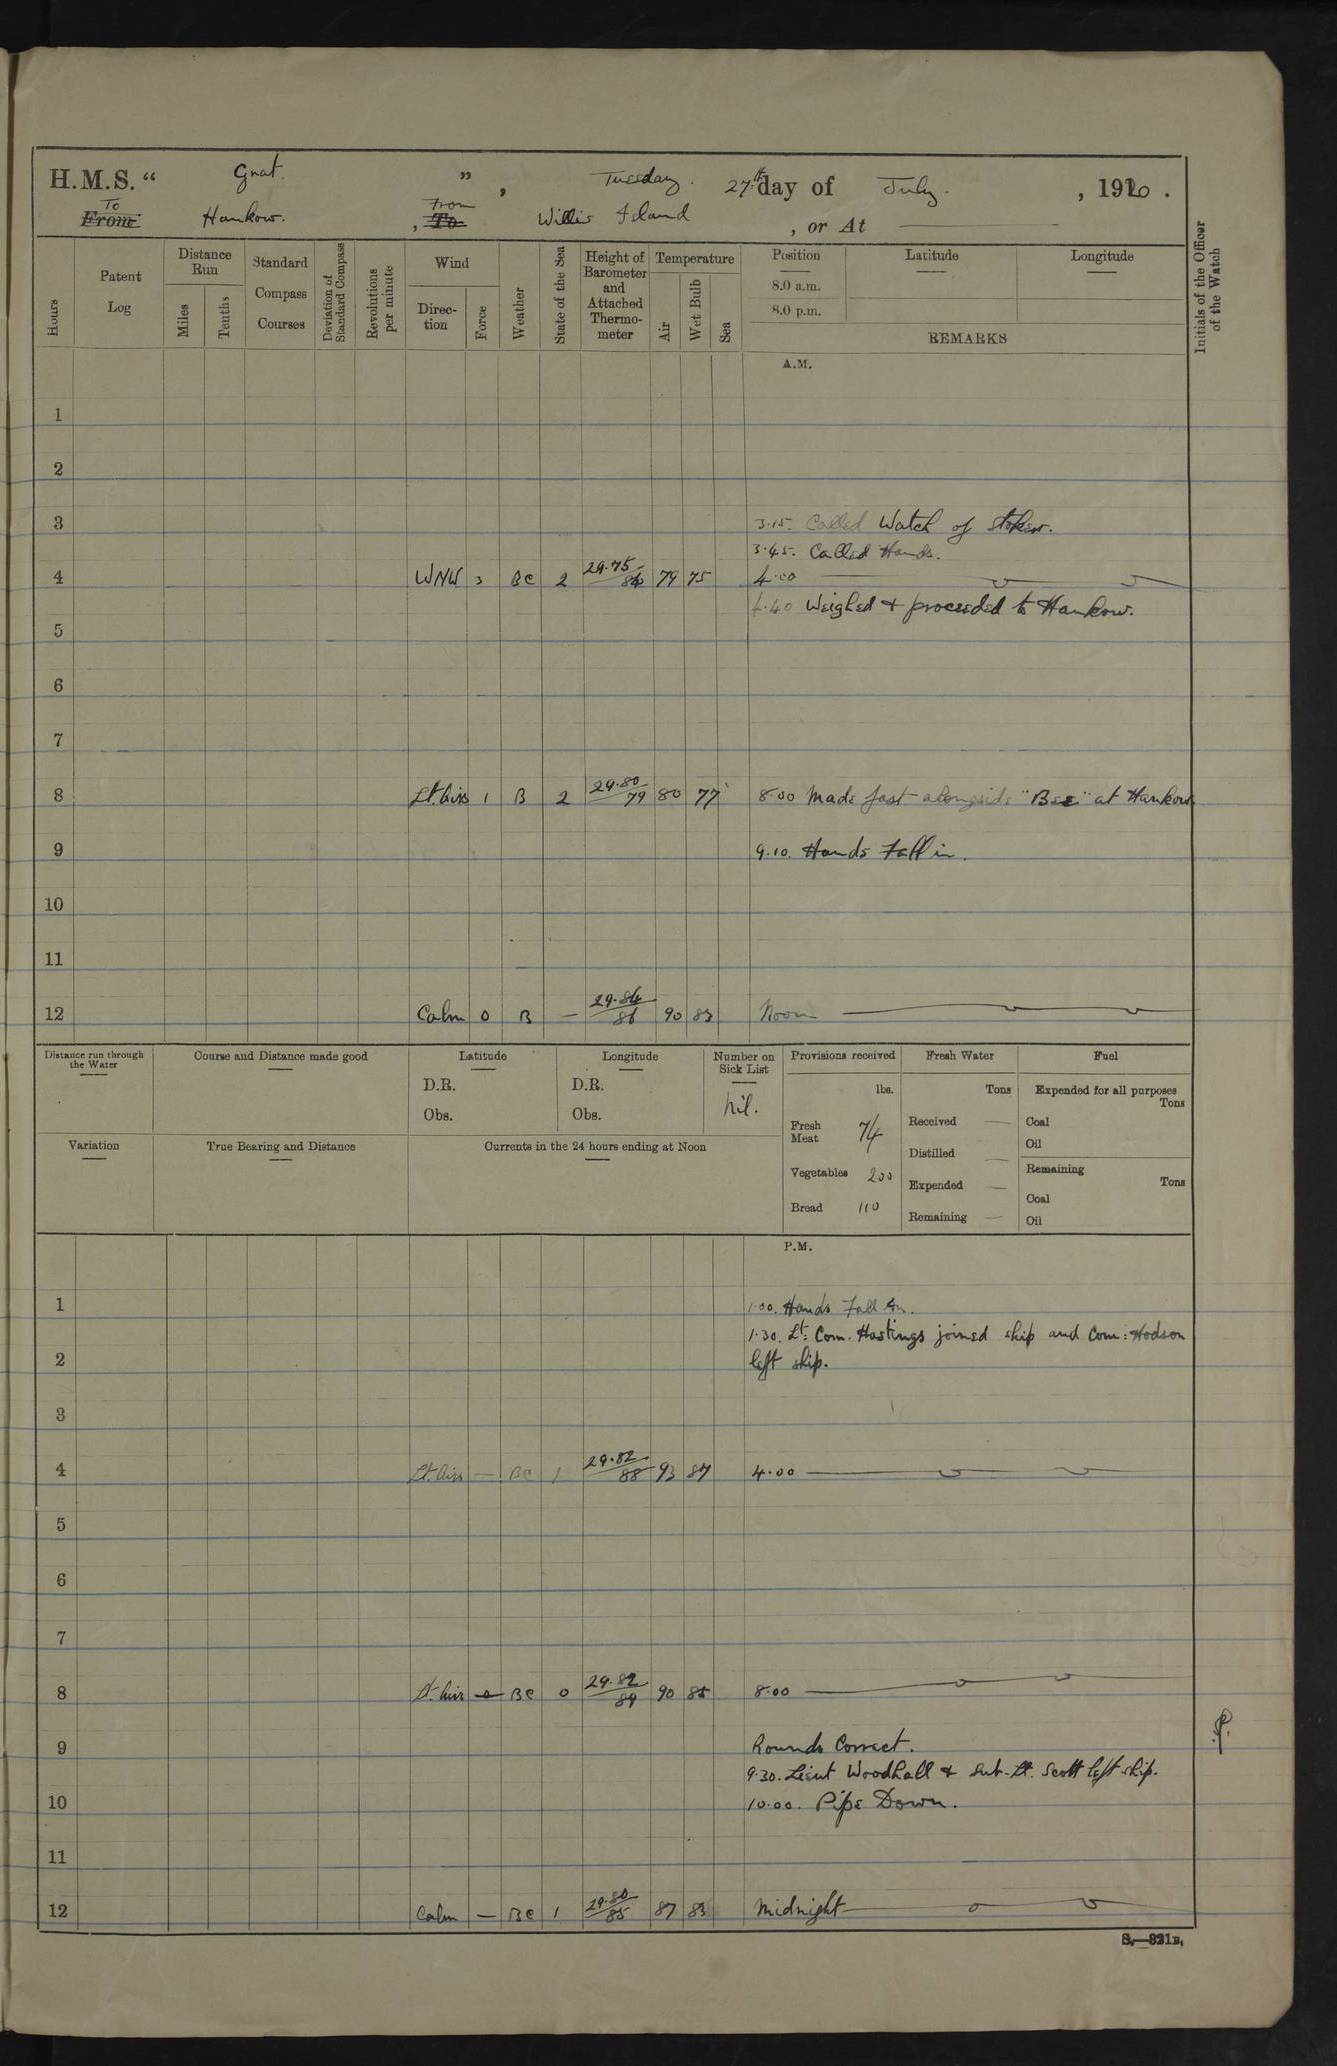 H.M.S. “ Gnat. ” , Tuesday. 27th day of July. , 1920 .
To From Hankow. , From To Willis Island , or At
Hours
Patent Log
Distance Run
Miles
Tenths
Standard Compass Courses
Deviation of Standard Compass
Revolutions per minute
Wind
Direction
Force
Weather
State of the Sea
Height of Barometer and Attached Thermometer
Temperature
Air
Wet Bulb
Sea
Position
8.0 a.m.
8.0 p.m.
Latitude
Longitude
REMARKS
Initials of the Officer of the Watch
A.M.
1
2
3 3.15. Called Watch of Stokers.
3.45. Called Hands.
4 WNW 3 BC 2 29.75 84 79 75 4.00
4.40 Weighed + proceeded to Hankow.
5
6
7
8 Lt. Airs 1 B 2 29.80 79 80 77 8.00 Made fast alongside "Bee" at Hankow
9 9.10. Hands Fall in.
10
11
12 Calm 0 B — 29.84 86 90 83 Noon
Distance run through the Water
Course and Distance made good
Latitude
D.R.
Obs.
Longitude
D.R.
Obs.
Number on Sick List
Nil.
Provisions received
lbs.
Fresh Meat 74
Vegetables 200
Bread 110
Fresh Water
Tons
Received —
Distilled —
Expended —
Remaining —
Fuel
Expended for all purposes
Tons
Coal
Oil
Remaining
Tons
Coal
Oil
Variation
True Bearing and Distance
Currents in the 24 hours ending at Noon
P.M.
1 1.00. Hands Fall In.
1.30. Lt: Com. Hastings joined ship and Com: Hodson
2 left ship.
3
4 Lt. Airs — BC 1 29.82 88 93 87 4.00
5
6
7
8 Lt. Airs — BC 0 29.82 89 90 85 8.00
9 Rounds Correct.
9.30. Lieut Woodhall + Sub-Lt. Scott left ship.
10 10.00. Pipe Down.
11
12 Calm — BC 1 29.80 85 87 83 Midnight